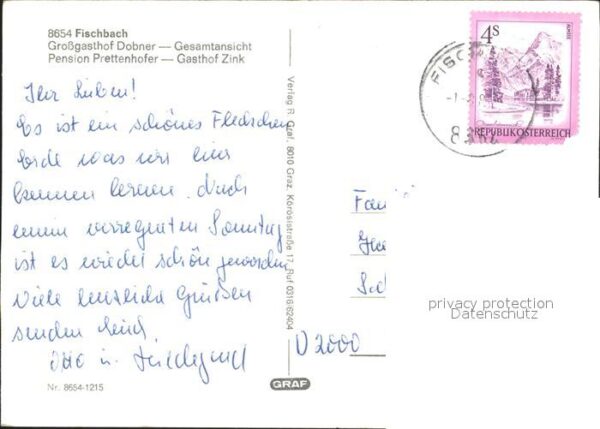 8654 Fischbach
Großgasthof Dobner — Gesamtansicht
Pension Prettenhofer — Gasthof Zink
Ihr Lieben!
Es ist ein schönes Fleckchen
Erde was wir hier
kennen lernen. Nach
einem verregneten Sonntag
ist es wieder schön geworden
Viele herzliche Grüße
senden Euch
Otto u.
Nr. 8654-1215
Verlag R. Graf, 8010 Graz, Körösistraße 17, Ruf 0316/62404
GRAF
4S
ALMSEE
REPUBLIK ÖSTERREICH
FISC
Fam
D 2000
privacy protection
Datenschutz